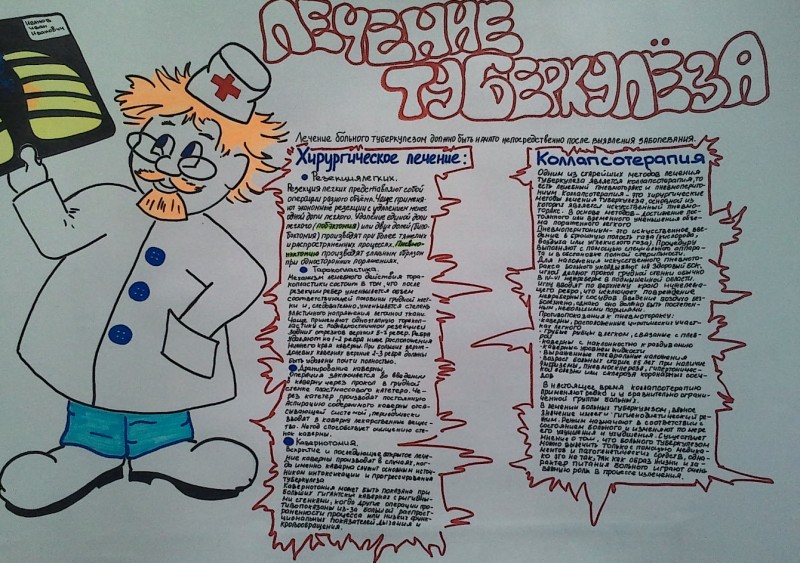 Иванов
Иван
Иванович
ЛЕЧЕНИЕ
ТУБЕРКУЛЁЗА
Лечение больного туберкулезом должно быть начато непосредственно после выявления заболевания.
Хирургическое лечение:
Резекция легких.
Резекция легких представляют собой
операции разного объёма. Чаще применя-
ют экономные резекции с удалением менее
одной доли легкого. Удаление единой доли
легкого (лобэктомия) или двух долей (било-
бэктомия) производят при более тяжелых
и распространенных процессах. Пневмо-
нэктомию производят главным образом
при односторонних поражениях.
Торакопластика.
Механизм лечебного действия тора-
копластики состоит в том, что после
резекции ребер уменьшается объем
соответствующей половины грудной клет-
ки и, следовательно, уменьшается степень
эластичного напряжения легочной ткани.
Чаще применяют одноэтапную торако-
пластику с поднадкостничной резекцией
задних отрезков верхних 5-7 ребер. Ребра
удаляют на 1-2 ребра ниже расположения
нижнего края каверны. При больших верхне-
долевых кавернах верхние 2-3 ребра должны
быть удалены почти полностью.
Дренирование каверны.
Операция заключается во введении
в каверну через прокол в грудной
стенке пластмассового катетера. Че-
рез катетер производят постоянную
аспирацию содержимого каверны отса-
сывающей системой, периодически
вводят в каверну лекарственные вещес-
тва. Метод способствует очищению сте-
нок каверны.
Кавернотомия.
Вскрытие и последующее открытое лече-
ние каверны производят в случаях, ког-
да именно каверна служит основным источ-
ником интоксикации и прогрессирования
туберкулёза
Кавернотомия может быть показана при
больших гигантских кавернах с ригидны-
ми стенками, когда другие операции про-
тивопоказаны из-за большой распрост-
раненности процесса или низких функ-
циональных показателей дыхания и
кровообращения.
Коллапсотерапия
Одним из старейших методов лечения
туберкулёза является коллапсотерапия, то
есть лечебный пневмоторакс и пневмопери-
тониум. Коллапсотерапия - это хирургические
методы лечения туберкулёза, основной из
которых является искусственный пневмо-
торакс. В основе методов - достижение пос-
тоянного или временного уменьшения объё-
ма пораженного легкого
Пневмоперитониум - это искусственное вве-
дение в брюшную полость газа (кислорода,
воздуха или углекислого газа). Процедуру
выполняют с помощью специального аппара-
та и в обстановке полной стерильности.
Для наложения искусственного пневмото-
ракса больного укладывают на здоровый бок,
иглой делают прокол грудной стенки обычно
в межреберье в подмышечной области.
Иглу вводят по верхнему краю нижележа-
щего ребра, что исключает повреждение
межреберных сосудов. Введение воздуха без-
болезненно, однако оно должно быть постепен-
ным, небольшими порциями.
Противопоказания к пневмотораксу:
каверны, расположенные в цирротических участ-
ках легкого
-грубые рубцы в легком, связанные с плев-
- каверны с наклонностью к раздуванию
- каверны, уровни жидкости
- выраженные плевральные наложения
- возраст больных старше 65 лет при наличие
эмфиземы, пневмосклероза, гипертоничес-
кой болезни или склероза коронарных сосу-
дов
В настоящее время коллапсотерапию
применяют редко и у сравнительно огра-
ниченной группы больных.
В лечении больных туберкулезом, важное
значение имеет и гигиенодиетический ре-
жим. Режим назначают в соответствии с
состоянием больного и изменяют по мере
его улучшения и ухудшения. Существует
мнение о том, что больного туберкулезом
можно вылечить только с помощью медика-
ментов и патогенетических средств, одна-
ко это не так, так как образ жизни и ха-
рактер питания больного играют очень
важную роль в процессе излечения.